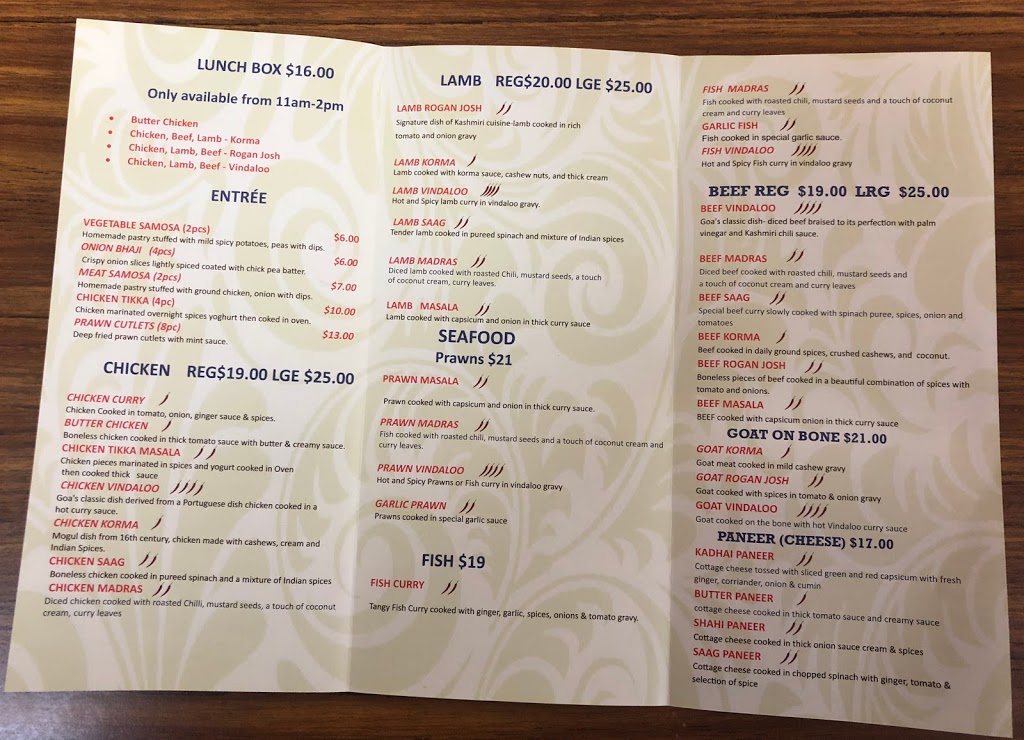 LUNCH BOX $16.00
Only available from 11am-2pm
• Butter Chicken
• Chicken, Beef, Lamb - Korma
• Chicken, Lamb, Beef - Rogan Josh
• Chicken, Lamb, Beef - Vindaloo
ENTRÉE
VEGETABLE SAMOSA (2pcs) $6.00
Homemade pastry stuffed with mild spicy potatoes, peas with dips.
ONION BHAJI (4pcs) $6.00
Crispy onion slices lightly spiced coated with chick pea batter.
MEAT SAMOSA (2pcs) $7.00
Homemade pastry stuffed with ground chicken, onion with dips.
CHICKEN TIKKA (4pc) $10.00
Chicken marinated overnight spices yoghurt then coked in oven.
PRAWN CUTLETS (8pc) $13.00
Deep fried prawn cutlets with mint sauce.
CHICKEN REG$19.00 LGE $25.00
CHICKEN CURRY
Chicken Cooked in tomato, onion, ginger sauce & spices.
BUTTER CHICKEN
Boneless chicken cooked in thick tomato sauce with butter & creamy sauce.
CHICKEN TIKKA MASALA
Chicken pieces marinated in spices and yogurt cooked in Oven
then cooked thick sauce
CHICKEN VINDALOO
Goa's classic dish derived from a Portuguese dish chicken cooked in a
hot curry sauce.
CHICKEN KORMA
Mogul dish from 16th century, chicken made with cashews, cream and
Indian Spices.
CHICKEN SAAG
Boneless chicken cooked in pureed spinach and a mixture of Indian spices
CHICKEN MADRAS
Diced chicken cooked with roasted Chilli, mustard seeds, a touch of coconut
cream, curry leaves
LAMB REG$20.00 LGE $25.00
LAMB ROGAN JOSH
Signature dish of Kashmiri cuisine-lamb cooked in rich
tomato and onion gravy
LAMB KORMA
Lamb cooked with korma sauce, cashew nuts, and thick cream
LAMB VINDALOO
Hot and Spicy lamb curry in vindaloo gravy.
LAMB SAAG
Tender lamb cooked in pureed spinach and mixture of Indian spices
LAMB MADRAS
Diced lamb cooked with roasted Chili, mustard seeds, a touch
of coconut cream, curry leaves.
LAMB MASALA
Lamb cooked with capsicum and onion in thick curry sauce
SEAFOOD
Prawns $21
PRAWN MASALA
Prawn cooked with capsicum and onion in thick curry sauce.
PRAWN MADRAS
Fish cooked with roasted chili, mustard seeds and a touch of coconut cream and
curry leaves.
PRAWN VINDALOO
Hot and Spicy Prawns or Fish curry in vindaloo gravy
GARLIC PRAWN
Prawns cooked in special garlic sauce
FISH $19
FISH CURRY
Tangy Fish Curry cooked with ginger, garlic, spices, onions & tomato gravy.
FISH MADRAS
Fish cooked with roasted chili, mustard seeds and a touch of coconut
cream and curry leaves
GARLIC FISH
Fish cooked in special garlic sauce.
FISH VINDALOO
Hot and Spicy Fish curry in vindaloo gravy
BEEF REG $19.00 LRG $25.00
BEEF VINDALOO
Goa's classic dish- diced beef braised to its perfection with palm
vinegar and Kashmiri chili sauce.
BEEF MADRAS
Diced beef cooked with roasted chili, mustard seeds and
a touch of coconut cream and curry leaves
BEEF SAAG
Special beef curry slowly cooked with spinach puree, spices, onion and
tomatoes
BEEF KORMA
Beef cooked in daily ground spices, crushed cashews, and coconut.
BEEF ROGAN JOSH
Boneless pieces of beef cooked in a beautiful combination of spices with
tomato and onions.
BEEF MASALA
BEEF cooked with capsicum onion in thick curry sauce
GOAT ON BONE $21.00
GOAT KORMA
Goat meat cooked in mild cashew gravy
GOAT ROGAN JOSH
Goat cooked with spices in tomato & onion gravy
GOAT VINDALOO
Goat cooked on the bone with hot Vindaloo curry sauce
PANEER (CHEESE) $17.00
KADHAI PANEER
Cottage cheese tossed with sliced green and red capsicum with fresh
ginger, corriander, onion & cumin
BUTTER PANEER
cottage cheese cooked in thick tomato sauce and creamy sauce
SHAHI PANEER
Cottage cheese cooked in thick onion sauce cream & spices
SAAG PANEER
Cottage cheese cooked in chopped spinach with ginger, tomato &
selection of spice